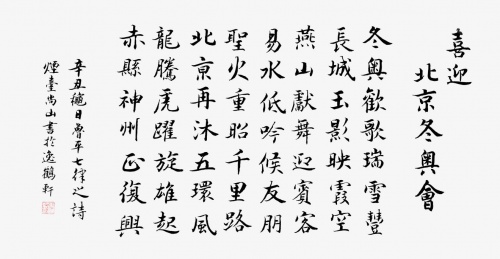 喜迎
北京冬奥會
冬奥歡歌瑞雪豐
長城玉影映霞空
燕山獻舞迎賓客
易水低吟候友朋
聖火重昭千里路
北京再沐五環風
龍騰虎躍旋雄起
赤縣神州正復興
辛丑穐日魯平七律之詩
煙臺尚山書於逸鶴軒